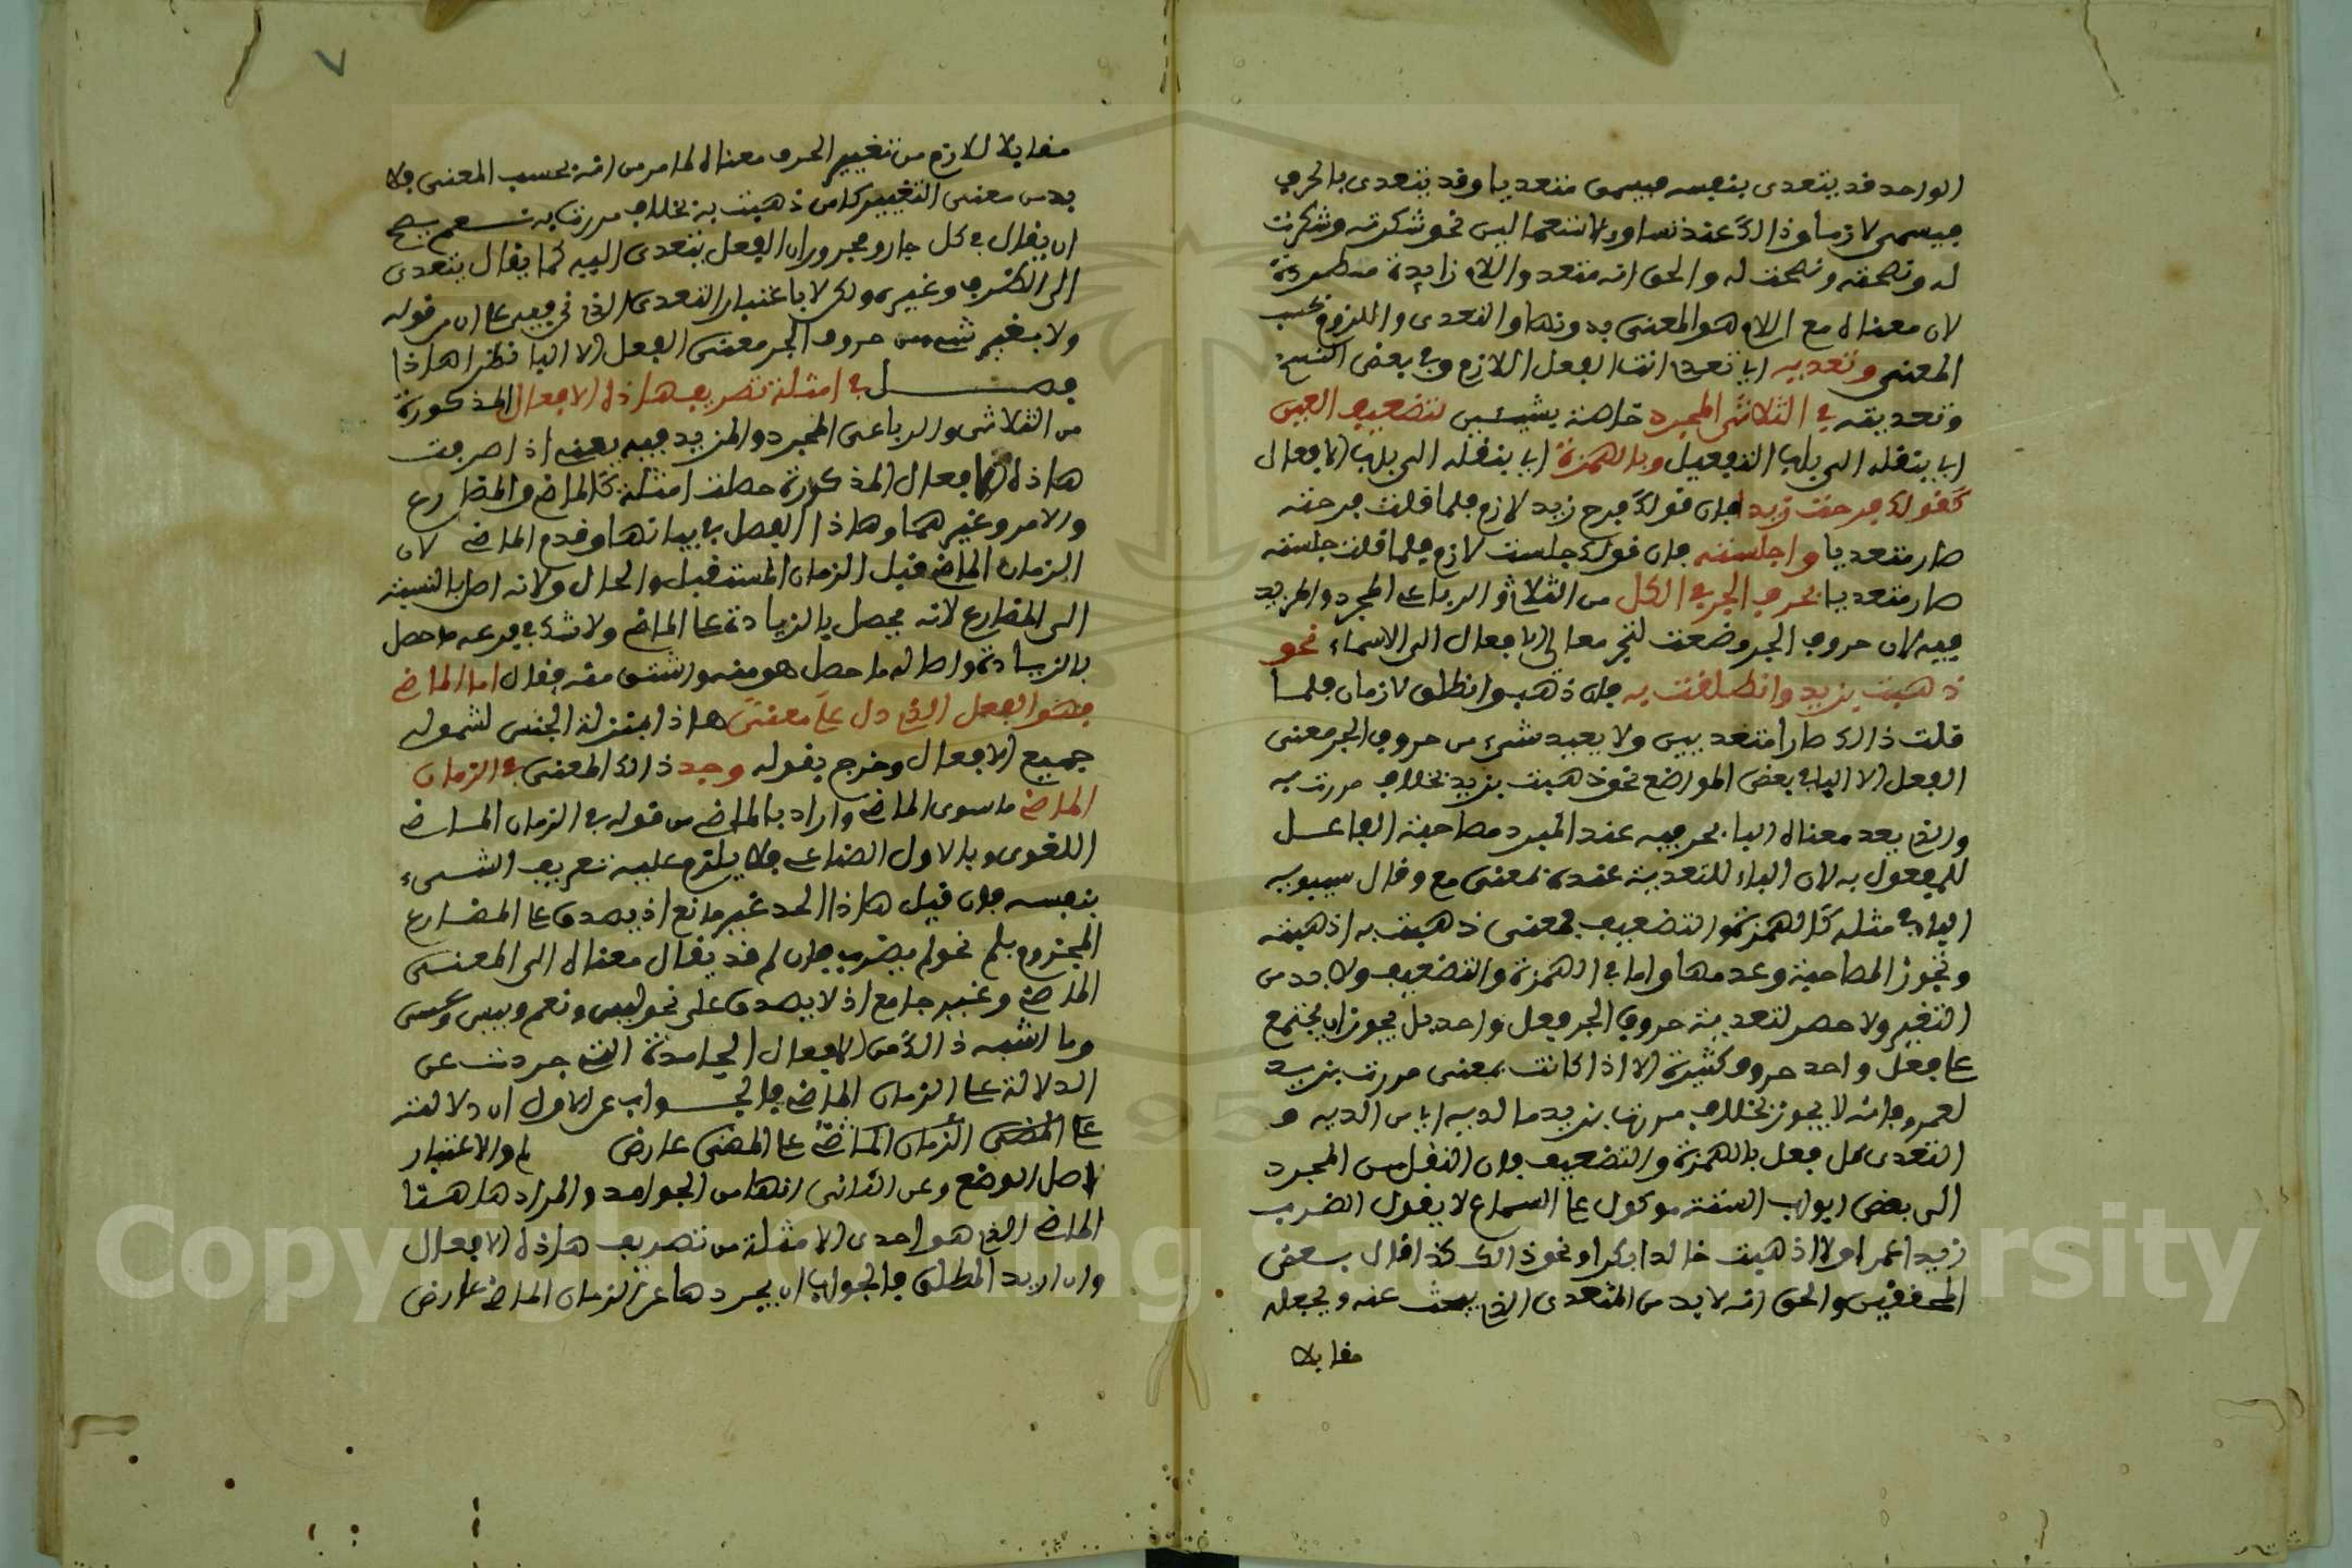 الواحد قد يتعدى بنفسه فيسمى متعديا وقد يتعدى بالحرف
فيسمى لازما وذالك عند تساوي الاستعمالين نحو شكرته وشكرت
له ونصحته ونصحت له والحق انه متعد واللام زايدة مطردة
لان معناه مع اللام هو المعنى بدونها والتعدى واللزوم بحسب
المعنى وتعديه اي تعدي انت الفعل اللازم وفي بعض النسخ
وتعديته في الثلاثي المجرد خاصة بشيئين لتضعيف العين
اي بنقله الى باب التفعيل وبالهمزة اي بنقله الى باب الافعال
كقولك فرحت زيدا فان قولك فرح زيد لازم فلما قلت فرحته
صار متعديا واجلسته فان قولك جلست لازم فلما قلت جلسته
صار متعديا بحرف الجر في الكل من الثلاثي والرباعي المجرد والمزيد
فيه لان حروف الجر وضعت لتجر معاني الافعال الى الاسماء نحو
ذهبت بزيد وانطلقت به فان ذهب وانطلق لازمان فلما
قلت ذالك صارا متعديين ولا يعيد شيء من حروف الجر معنى
الفعل الا البا في بعض المواضع نحو ذهبت بزيد بخلاف مررت به
والذي بعد معناه البا بحر فيه عند المبرد مصاحبة الفاعل
للمفعول به لان الباء للتعدية عنده بمعنى مع وقال سيبويه
الباء في مثله كالهمزة والتضعيف فمعنى ذهبت به اذهبته
وتجوز المصاحبة وعدمها واما في الهمزة والتضعيف ولا بد من
التغير ولا حصر لتعدية حروف الجر فعل واحد بل يجوز ان يجتمع
على فعل واحد حروف كثيرة الا اذا كانت بمعنى مررت بزيد
لعمرو فانه لا يجوز بخلاف مررت بزيد مالديه اي من الديه و
التعدى كل فعل بالهمزة والتضعيف فان النقل من المجرد
الى بعض ابواب الستة موكول على السماع لا يقول انضرب
زيدا عمرا ولا اذهبت خالدا بكرا ونحو ذالك كذا قال بعض
المحققين والحق انه لا بد من المتعدى الذي يبحث عنه ويجعله
مقابلا
مقابلا للازم من تغيير الحرف معناه لما مر من انه بحسب المعنى فلا
بد من معنى التغيير كما من ذهبت به بخلاف مررت به نعم يصح
ان يقال في كل جار ومجرور ان الفعل يتعدى اليه كما يقال يتعدى
الى الظرف وغيره ولكن لا باعتبار التعدي الذي نحن فيه على ان مر قوله
ولا يغير شيء من حروف الجر معنى الفعل الا البا نظرا هاذا
فصل في امثلة تصريف هاذه الافعال المذكورة
من الثلاثي والرباعي المجرد والمزيد فيه يعني اذا صرفت
هاذه الافعال المذكورة حصلت امثلة كالماضي والمضارع
والامر وغيرهما وهاذا الفصل في بيانها وقدم الماضي لان
الزمان الماضي قبل الزمان المستقبل والحال ولانه اصل بالنسبة
الى المضارع لانه يحصل بالزيادة على الماضي ولا شك في فرعية ما حصل
بالزيادة واصالة ما حصل هو منه واشتق منه فقال اما الماضي
فهو الفعل الذي دل على معنى هاذا بمنزلة الجنس لشموله
جميع الافعال وخرج بقوله وجد ذالك المعنى في الزمان
الماضي ما سوى الماضي واراد بالماضي من قوله في الزمان الماضي
اللغوى وبالاول الصناعي فلا يلزم عليه تعريف الشيء
بنفسه فان قيل هاذا الحد غير مانع اذ يصدق على المضارع
المجزوم بلم نحو لم يضرب فان لم قد يقال معناه الى المعنى
الماضي وغير جامع اذ لا يصدق على نحو ليس ونعم وبيس وعسى
وما اشبه ذالك من الافعال الجامدة التي جردت عن
الدلالة على الزمان الماضي فالجواب عن الاول ان دلالته
على المضي الزمان الماضي على المضي عارض لم والاعتبار
لاصل الوضع وعن الثاني انها من الجوامد والمراد هاهنا
الماضي الذي هو احدى الامثلة من تصريف هاذه الافعال
وان اريد المطلق فالجواب ان يجردها عن الزمان الماضي عارض